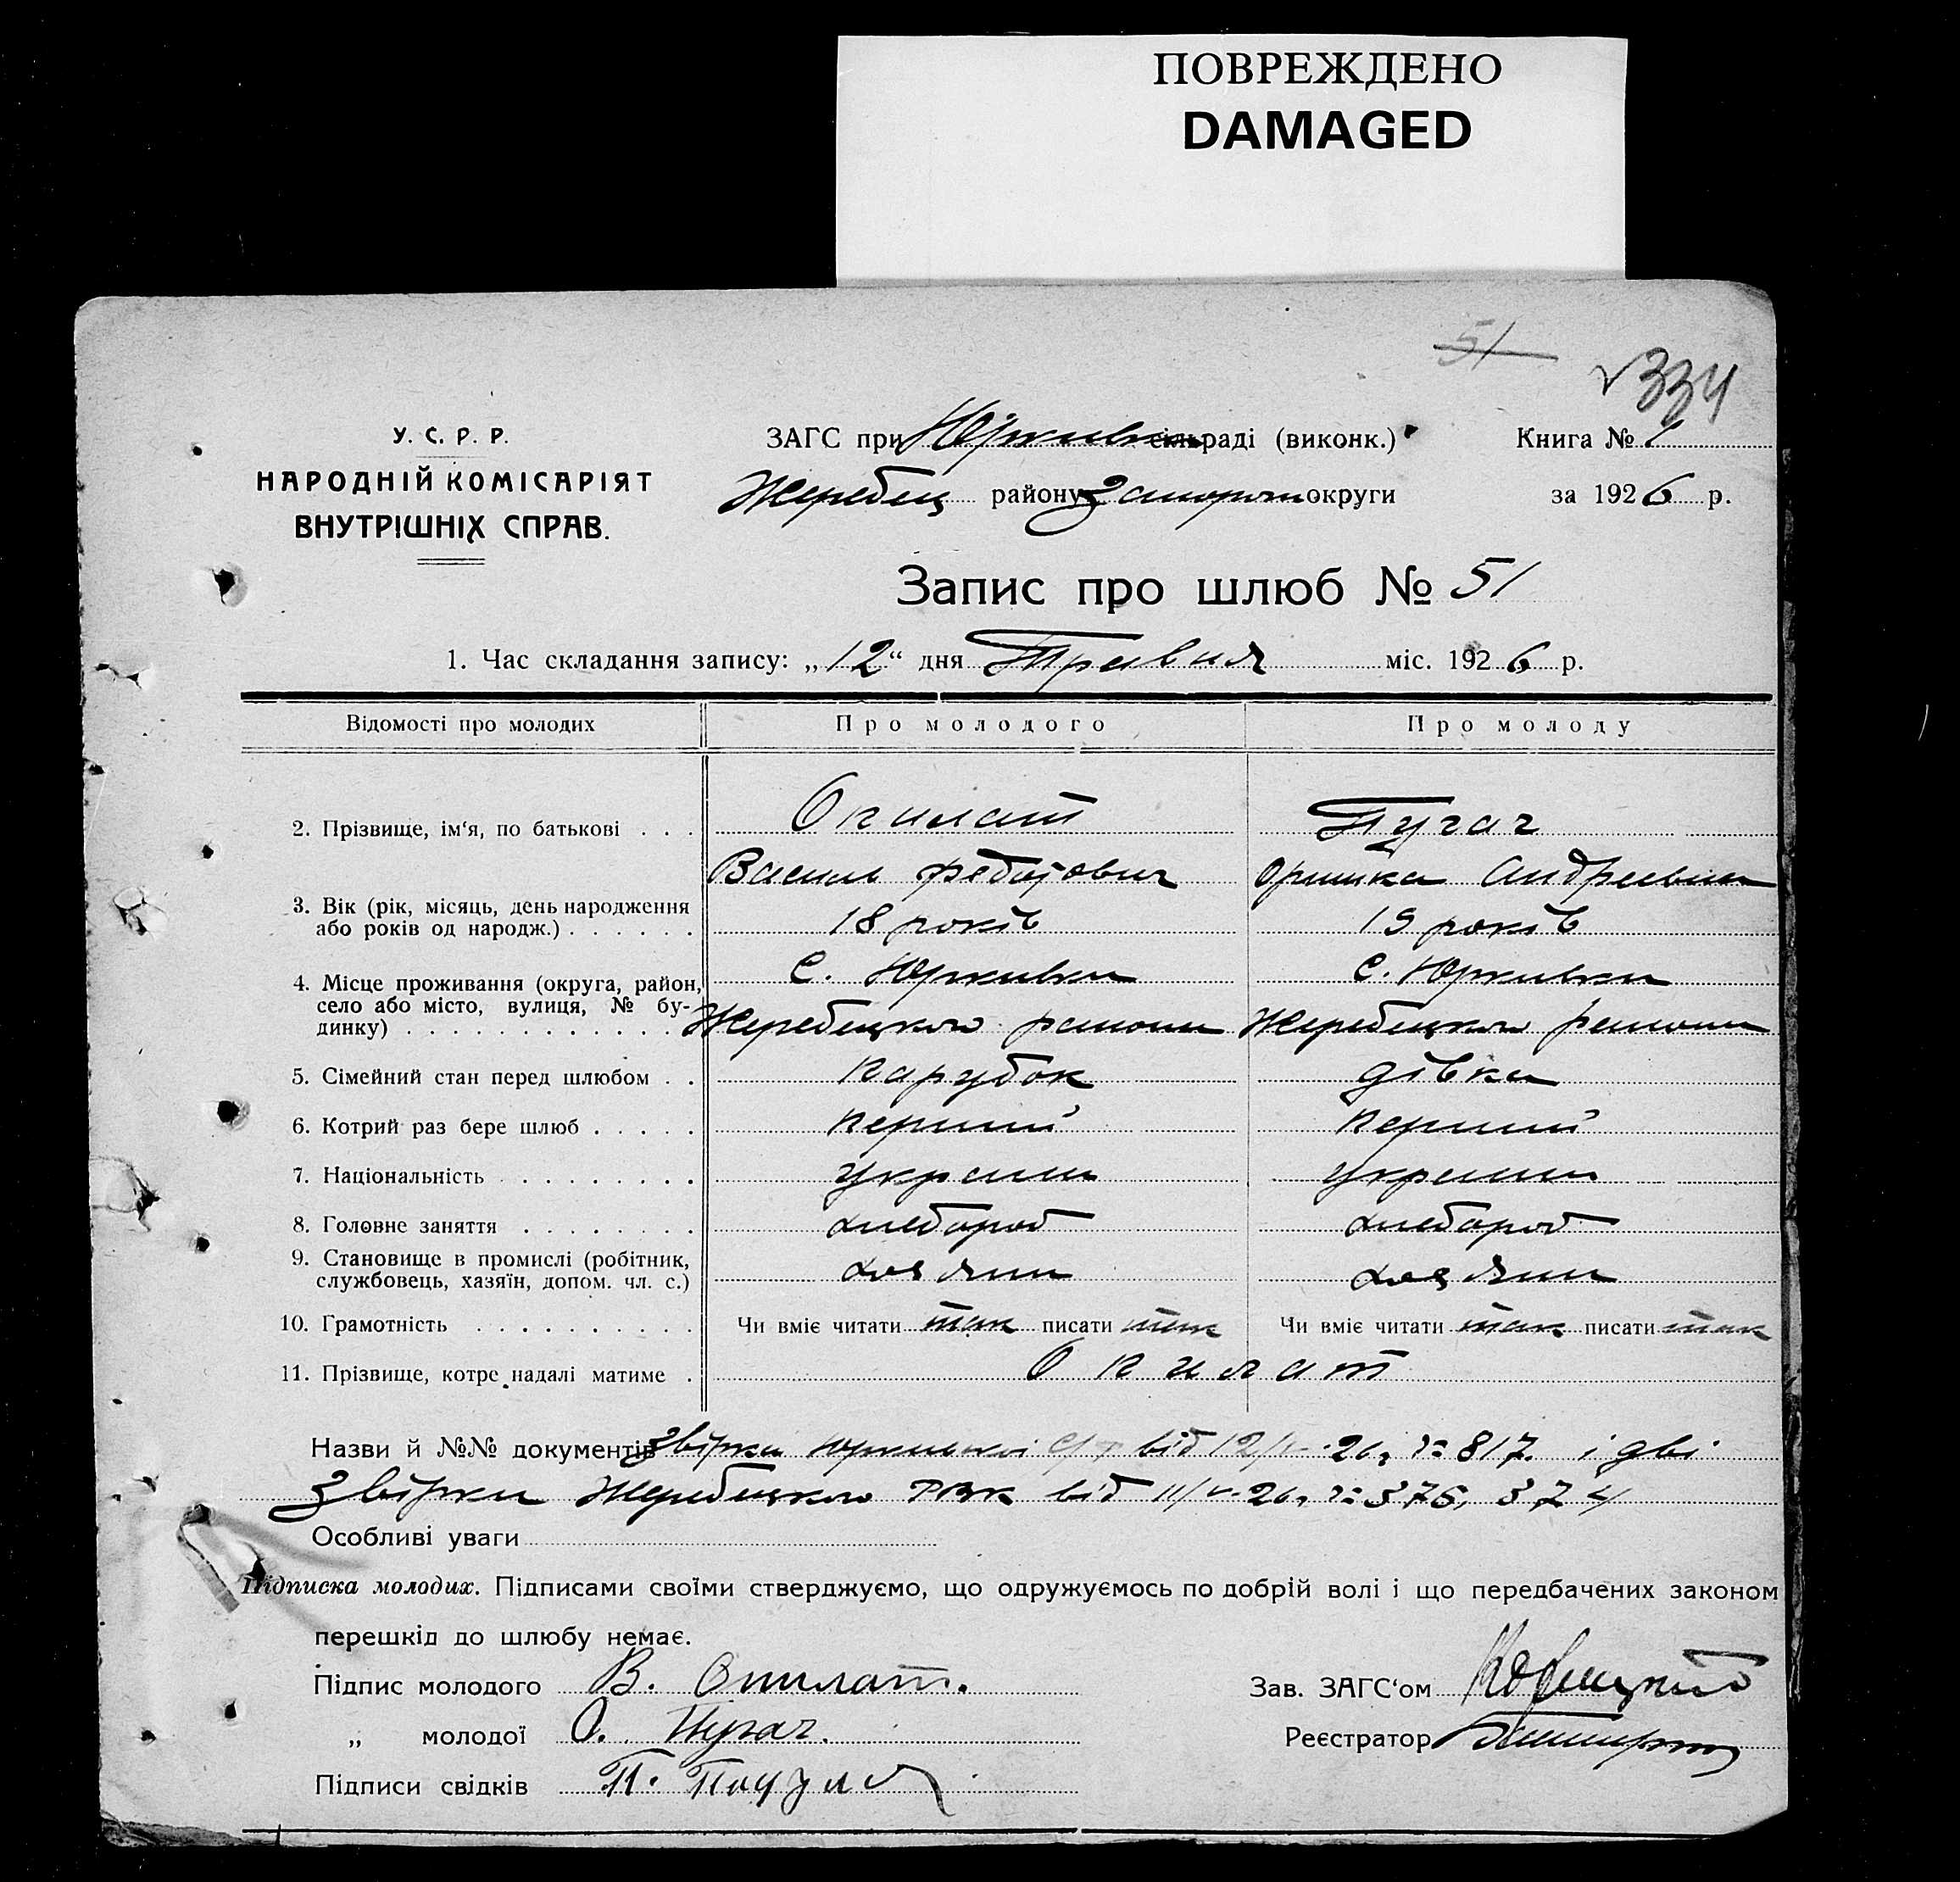 ПОВРЕЖДЕНО
DAMAGED
51
334
У. С. Р. Р.
НАРОДНІЙ КОМІСАРІЯТ
ВНУТРІШНІХ СПРАВ.
ЗАГС при Юрківск сільраді (виконк.) Книга № 1
Жеребец району Запорож округи за 1926 р.
Запис про шлюб № 51
1. Час складання запису: „12“ дня Травня міс. 1926 р.
Відомості про молодих Про молодого Про молоду
2. Прізвище, ім‘я, по батькові . . . Опилат Пугач
Василь Федотович Оришка Андреевна
3. Вік (рік, місяць, день народження
або років од народж.) . . . . . . 18 років 19 років
4. Місце проживання (округа, район, С. Юркивка С. Юркивка
село або місто, вулиця, № бу-
динку) . . . . . . . . . . . . Жеребецкого району Жеребецкого району
5. Сімейний стан перед шлюбом . . парубок дівка
6. Котрий раз бере шлюб . . . . . перший перший
7. Національність . . . . . . . . . україн україн
8. Головне заняття . . . . . . . . хлебороб хлебороб
9. Становище в промислі (робітник,
службовець, хазяїн, допом. чл. с.) хозяин хозяин
10. Грамотність . . . . . . . . . . Чи вміє читати так писати так Чи вміє читати так писати так
11. Прізвище, котре надалі матиме . Опилат
Назви й №№ документів Звірка Юркивкої с/р від 12/V-26 р № 817. і дві
звірки Жеребецкого РВК від 11/V-26 р № 375, 374
Особливі уваги
Підписка молодих. Підписами своїми стверджуємо, що одружуємось по добрій волі і що передбачених законом
перешкід до шлюбу немає.
Підпис молодого В. Опилат. Зав. ЗАГС‘ом
„ молодої О. Пугач. Реєстратор
Підписи свідків П.